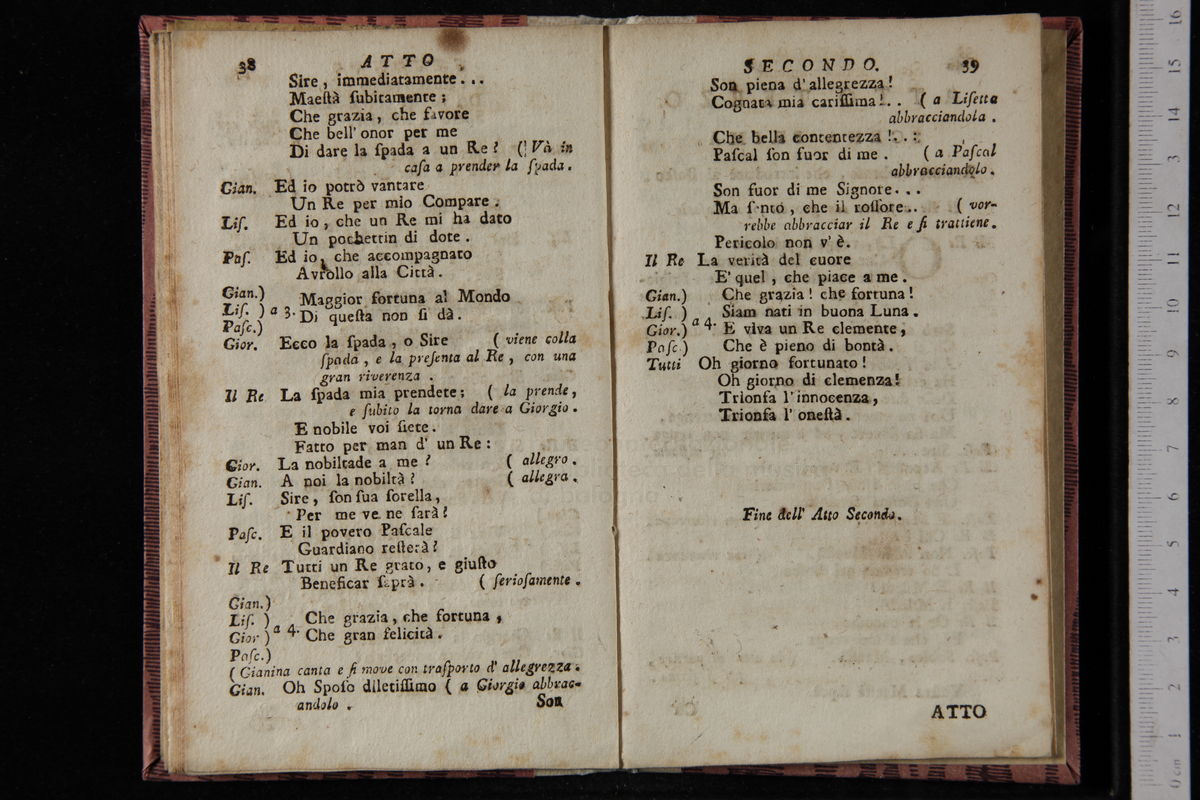 38 ATTO
Sire, immediatamente...
Maeſtà ſubitamente;
Che grazia, che favore
Che bell' onor per me
Di dare la ſpada a un Re? (Và in
caſa a prender la ſpada.
Gian. Ed io potrò vantare
Un Re per mio Compare.
Liſ. Ed io, che un Re mi ha dato
Un pochettin di dote.
Paſ. Ed io, che accompagnato
Avrollo alla Città.
Gian.)
Liſ. ) a 3. Maggior fortuna al Mondo
Paſc.) Di queſta non ſi dà.
Gior. Ecco la ſpada, o Sire ( viene colla
ſpada, e la preſenta al Re, con una
gran riverenza.
Il Re La ſpada mia prendete; ( la prende,
e ſubito la torna dare a Giorgio.
E nobile voi ſiete.
Fatto per man d' un Re:
Gior. La nobiltade a me? ( allegro.
Gian. A noi la nobiltà? ( allegra.
Liſ. Sire, ſon ſua ſorella,
Per me ve ne ſarà?
Paſc. E il povero Paſcale
Guardiano reſterà?
Il Re Tutti un Re grato, e giuſto
Beneficar ſaprà. ( ſerioſamente.
Gian.)
Liſ. ) Che grazia, che fortuna,
Gior ) a 4. Che gran felicità.
Paſc.)
( Gianina canta e ſi move con traſporto d' allegrezza.
Gian. Oh Spoſo diletiſſimo ( a Giorgio abbrac-
andolo.
Son
SECONDO. 39
Son piena d' allegrezza!
Cognata mia cariſſima!.. ( a Liſetta
abbracciandola.
Che bella contentezza!..:
Paſcal ſon fuor di me. ( a Paſcal
abbracciandolo.
Son fuor di me Signore...
Ma ſento, che il roſſore.. ( vor-
rebbe abbracciar il Re e ſi trattiene.
Pericolo non v' è.
Il Re La verità del cuore
E' quel, che piace a me.
Gian.) Che grazia! che fortuna!
Liſ. ) Siam nati in buona Luna.
Gior.) a 4. E viva un Re clemente,
Paſc.) Che è pieno di bontà.
Tutti Oh giorno fortunato!
Oh giorno di clemenza!
Trionfa l'innocenza,
Trionfa l' oneſtà.
Fine dell' Atto Secondo.
ATTO